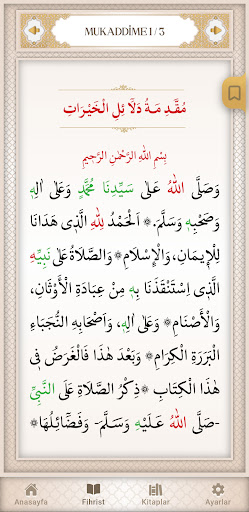 MUKADDİME 1 / 3
مُقَدِّمَةُ دَلَائِلِ الْخَيْرَاتِ
بِسْمِ اللهِ الرَّحْمٰنِ الرَّحِيمِ
وَصَلَّى اللهُ عَلٰى سَيِّدِنَا مُحَمَّدٍ وَعَلٰى اٰلِهٖ
وَصَحْبِهٖ وَسَلَّمَ۞ اَلْحَمْدُ لِلّٰهِ الَّذٖى هَدَانَا
لِلْاٖيمَانِ، وَالْاِسْلَامِ۞ وَالصَّلَاةُ عَلٰى نَبِيِّهِ
الَّذٖى اِسْتَنْقَذَنَا بِهٖ مِنْ عِبَادَةِ الْاَوْثَانِ،
وَالْاَصْنَامِ۞ وَعَلٰى اٰلِهٖ، وَاَصْحَابِهِ النُّجَبَاءِ
الْبَرَرَةِ الْكِرَامِ۞ وَبَعْدَ هٰذَا فَالْغَرَضُ فٖى
هٰذَا الْكِتَابِ۞ ذِكْرُ الصَّلَاةِ عَلَى النَّبِيِّ
-صَلَّى اللهُ عَلَيْهِ وَسَلَّمَ- وَفَضَائِلُهَا۞
Anasayfa Fihrist Kitaplar Ayarlar